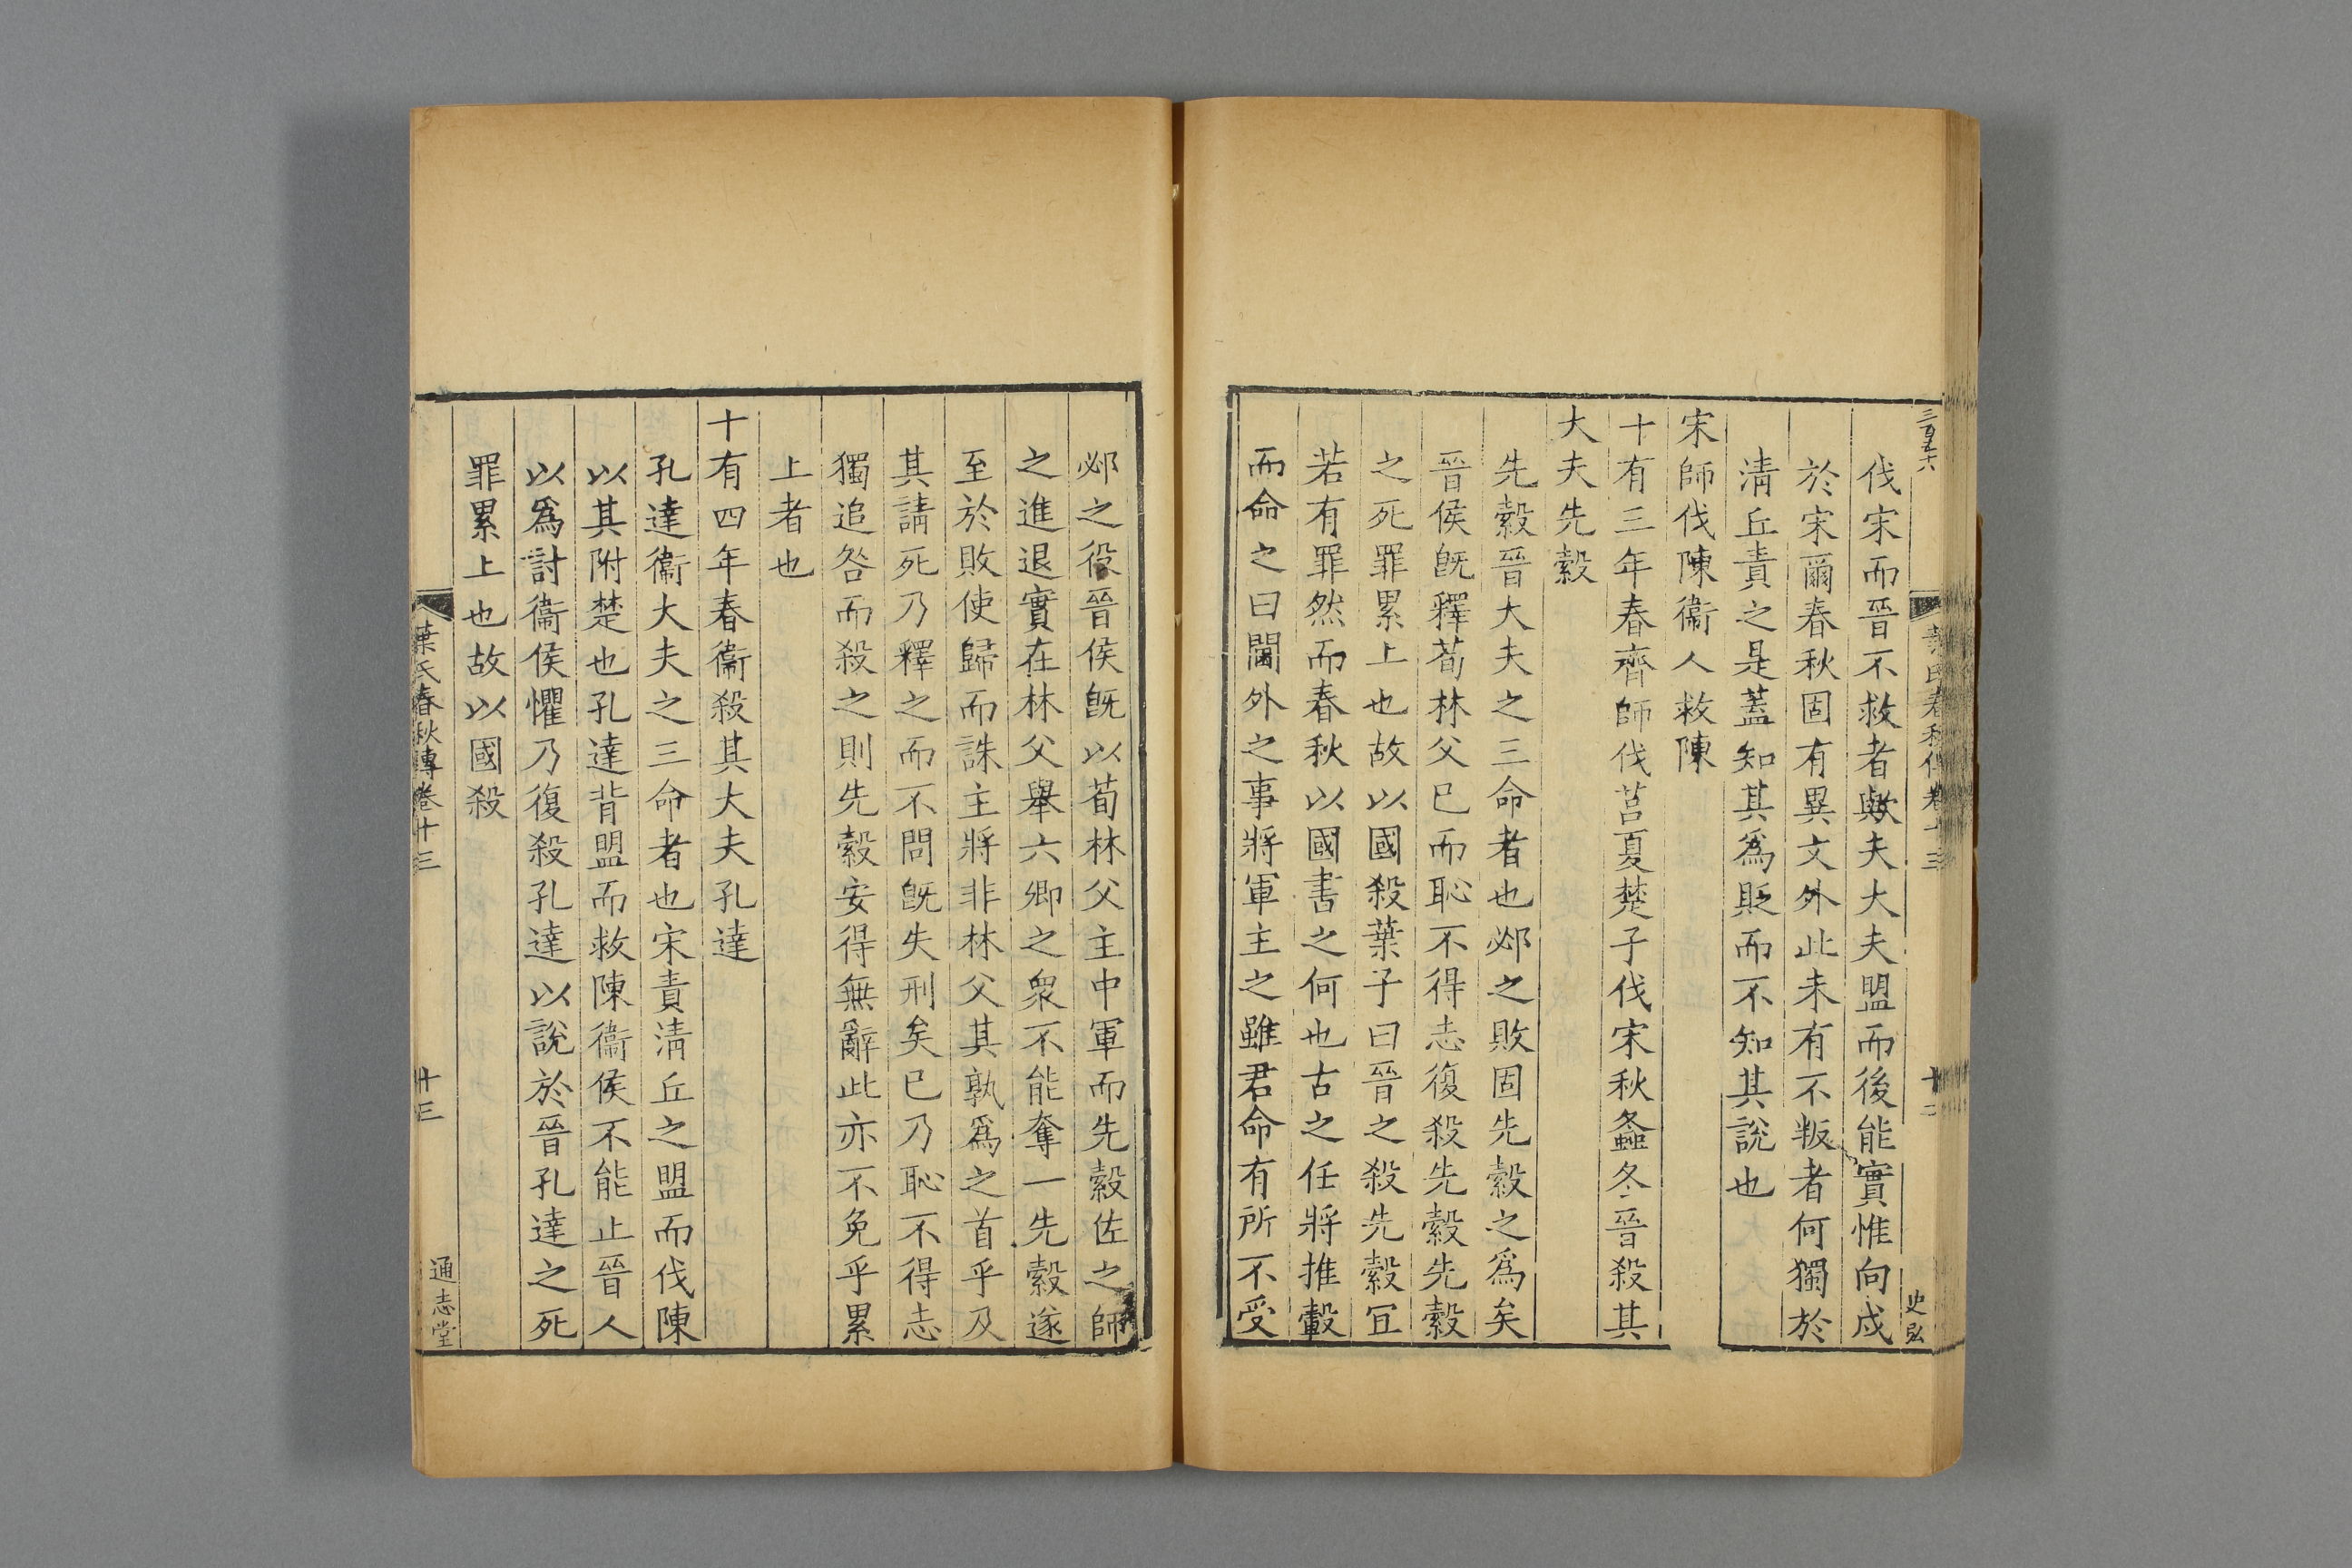 三百五十六
葉氏春秋傳卷十三
十二
史弘
伐宋而晉不救者歟夫大夫盟而後能實惟向戍
於宋爾春秋固有異文外此未有不叛者何獨於
清丘責之是蓋知其為貶而不知其說也
宋師伐陳衞人救陳
十有三年春齊師伐莒夏楚子伐宋秋螽冬晉殺其
大夫先縠
先縠晉大夫之三命者也邲之敗固先縠之為矣
晉侯旣釋荀林父已而恥不得志復殺先縠先縠
之死罪累上也故以國殺葉子曰晉之殺先縠宜
若有罪然而春秋以國書之何也古之任將推轂
而命之曰閫外之事將軍主之雖君命有所不受
邲之役晉侯旣以荀林父主中軍而先縠佐之師
之進退實在林父舉六卿之衆不能奪一先縠遂
至於敗使歸而誅主將非林父其孰為之首乎及
其請死乃釋之而不問旣失刑矣已乃恥不得志
獨追咎而殺之則先縠安得無辭此亦不免乎累
上者也
十有四年春衞殺其大夫孔達
孔達衞大夫之三命者也宋責清丘之盟而伐陳
以其附楚也孔達背盟而救陳衞侯不能止晉人
以為討衞侯懼乃復殺孔達以說於晉孔達之死
罪累上也故以國殺
葉氏春秋傳卷十三
十三
通志堂